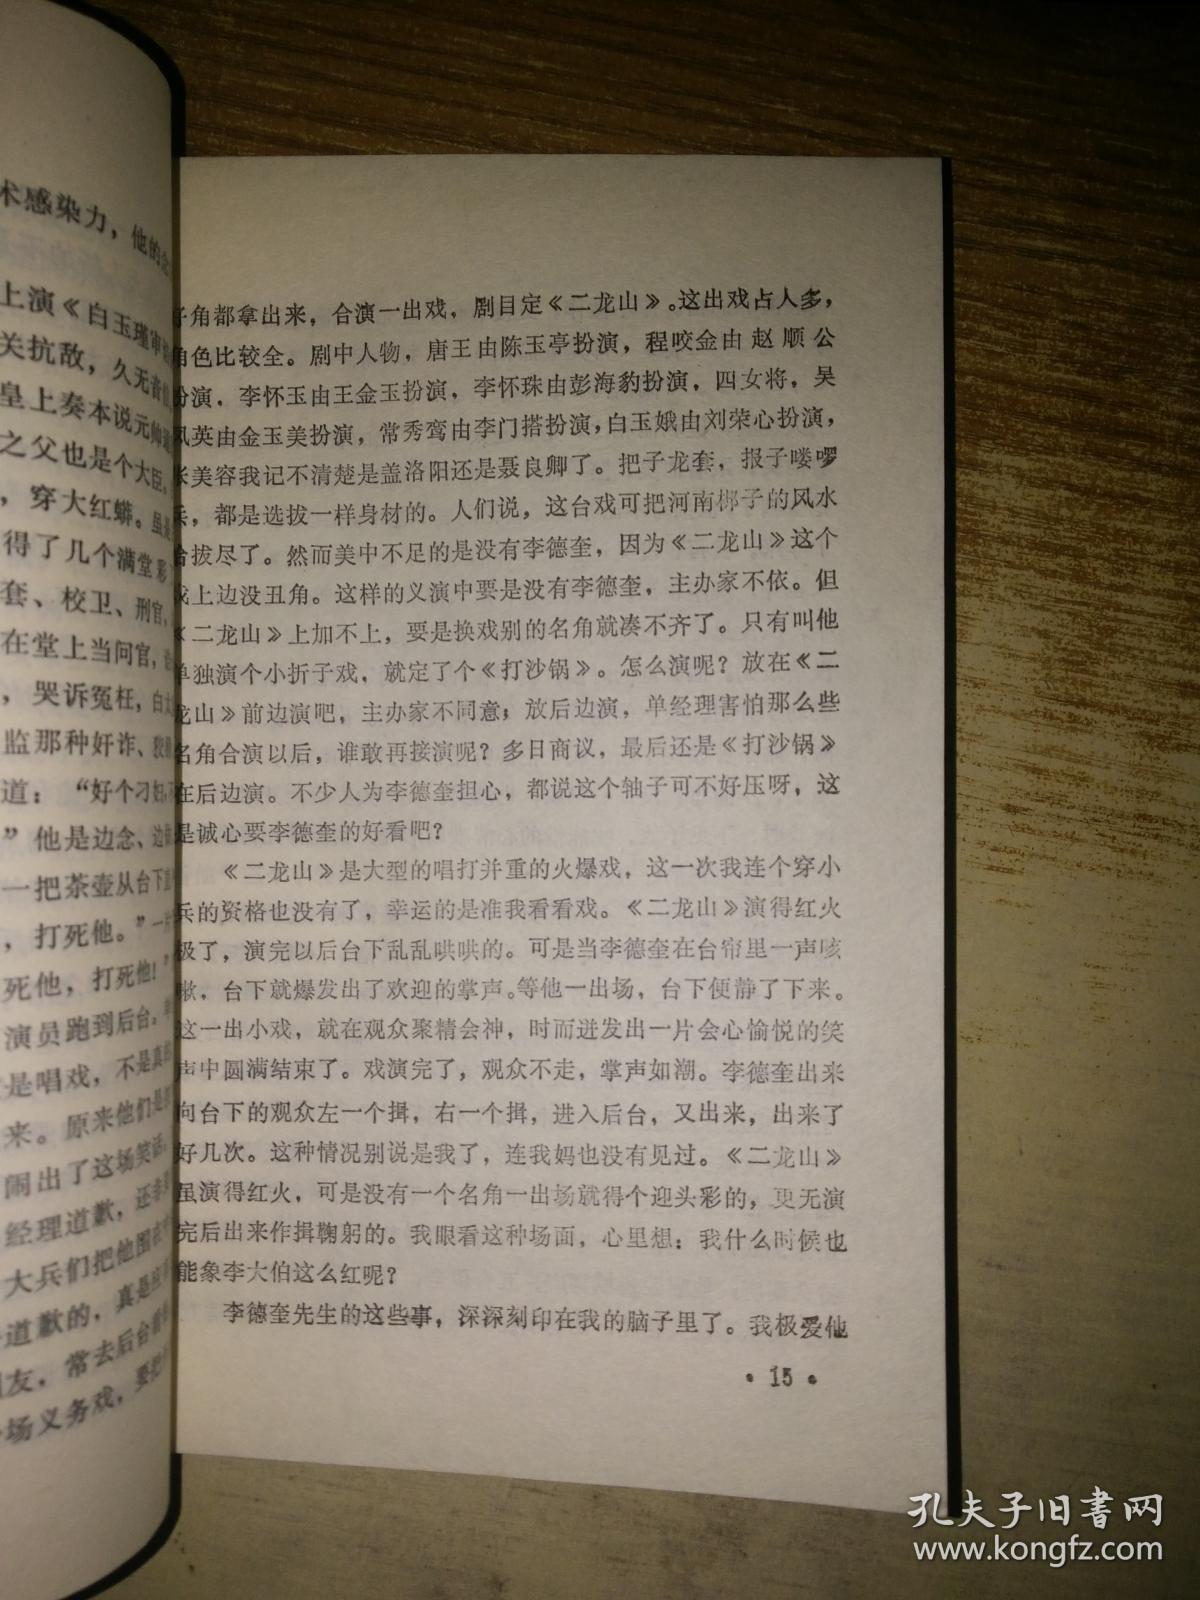 术感染力，他的
上演《白玉瑾审
关抗敌，久无音
皇上奏本说元帅
之父也是个大臣，
，穿大红蟒。虽
得了几个满堂彩
套、校卫、刑官，
在堂上当问官，
，哭诉冤枉，白
监那种奸诈、狡
道：“好个刁
”他是边念、边
一把茶壶从台下
，打死他。”一
死他，打死他！”
演员跑到后台。
是唱戏，不是真
来。原来他们是
闹出了这场笑话。
经理道歉，还
大兵们把他围
道歉的，真是
友，常去后台
场义务戏，要
角都拿出来，合演一出戏，剧目定《二龙山》。这出戏占人多，
角色比较全。剧中人物，唐王由陈玉亭扮演，程咬金由赵顺公
扮演，李怀玉由王金玉扮演，李怀珠由彭海豹扮演，四女将，吴
凤英由金玉美扮演，常秀鸾由李门搭扮演，白玉娥由刘荣心扮演，
张美容我记不清楚是盖洛阳还是聂良卿了。把子龙套，报子喽啰
兵，都是选拔一样身材的。人们说，这台戏可把河南梆子的风水
给拔尽了。然而美中不足的是没有李德奎，因为《二龙山》这个
戏上边没丑角。这样的义演中要是没有李德奎，主办家不依。但
《二龙山》上加不上，要是换戏别的名角就凑不齐了。只有叫他
单独演个小折子戏，就定了个《打沙锅》。怎么演呢？放在《二
龙山》前边演吧，主办家不同意；放后边演，单经理害怕那么些
名角合演以后，谁敢再接演呢？多日商议，最后还是《打沙锅》
在后边演。不少人为李德奎担心，都说这个轴子可不好压呀，这
是诚心要李德奎的好看吧？
《二龙山》是大型的唱打并重的火爆戏，这一次我连个穿小
兵的资格也没有了，幸运的是准我看看戏。《二龙山》演得红火
极了，演完以后台下乱乱哄哄的。可是当李德奎在台帘里一声咳
嗽，台下就爆发出了欢迎的掌声。等他一出场，台下便静了下来。
这一出小戏，就在观众聚精会神，时而迸发出一片会心愉悦的笑
声中圆满结束了。戏演完了，观众不走，掌声如潮。李德奎出来
向台下的观众左一个揖，右一个揖，进入后台，又出来，出来了
好几次。这种情况别说是我了，连我妈也没有见过。《二龙山》
虽演得红火，可是没有一个名角一出场就得个迎头彩的，更无演
完后出来作揖鞠躬的。我眼看这种场面，心里想：我什么时候也
能象李大伯这么红呢？
李德奎先生的这些事，深深刻印在我的脑子里了。我极爱他
• 15 •
孔夫子旧书网
www.kongfz.com